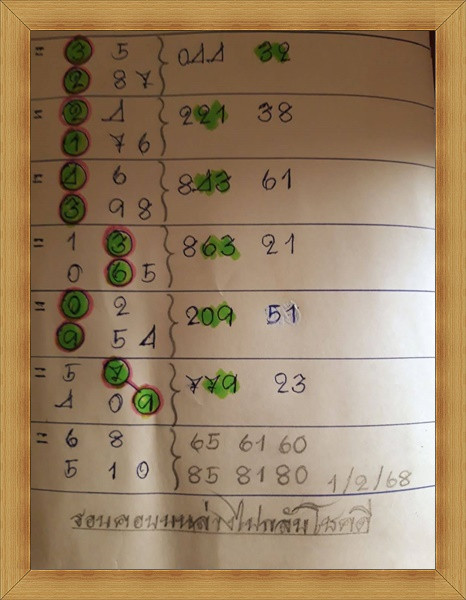 = 3 5 } 044 32
2 8 7
= 2 4 } 221 38
1 7 6
= 4 6 } 843 61
3 9 8
= 1 3 } 863 21
0 6 5
= 0 2 } 209 51
9 5 4
= 5 7 } 779 23
4 0 9
= 6 8 } 65 61 60
5 1 0 85 81 80 1/2/68
โชคดี